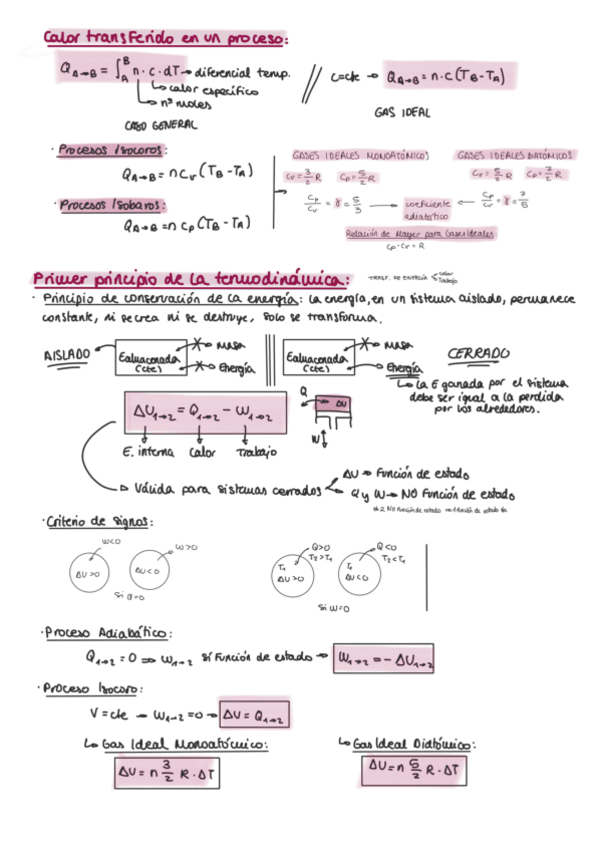 Calor transferido en un proceso:
Q A→B = ∫ᴬᴮ n · c · dT → diferencial temp.
↳ calor específico
↳ nº moles
CASO GENERAL
c=cte → Q A→B = n·c (T_B - T_A)
GAS IDEAL
· Procesos Isocoros:
Q A→B = n c_v (T_B - T_A)
· Procesos Isobaros:
Q A→B = n c_p (T_B - T_A)
GASES IDEALES MONOATÓMICOS
c_v = 3/2 R   c_p = 5/2 R
c_p/c_v = γ = 5/3 → coeficiente adiabático ← c_p/c_v = γ = 7/5
GASES IDEALES DIATÓMICOS
c_v = 5/2 R   c_p = 7/2 R
Relación de Mayer para Gases Ideales
c_p - c_v = R
Primer principio de la termodinámica:
TRASF. DE ENERGÍA < calor
trabajo
· Principio de conservación de la energía: la energía, en un sistema aislado, permanece
constante, ni se crea ni se destruye, solo se transforma.
AISLADO
Masa
Energía
(cte)
Masa
Energía
(cte)
CERRADO
↳ La E ganada por el sistema
debe ser igual a la perdida
por los alrededores.
ΔU 1→2 = Q 1→2 - W 1→2
E. interna   Calor   Trabajo
Q
ΔU
W
→ Válida para sistemas cerrados
ΔU → Función de estado
Q y W → NO Función de estado
· Criterio de signos:
W<0
ΔU>0
W>0
ΔU<0
Si Q=0
Q>0
T₂>T₁
T₁
ΔU>0
Q<0
T₂<T₁
T₁
ΔU<0
Si W=0
· Proceso Adiabático:
Q 1→2 = 0 ⇒ W 1→2 sí Función de estado → W 1→2 = - ΔU 1→2
· Proceso Isocoro:
V = cte → W 1→2 = 0 → ΔU = Q 1→2
↳ Gas Ideal Monoatómico:
ΔU = n 3/2 R · ΔT
↳ Gas Ideal Diatómico:
ΔU = n 5/2 R · ΔT